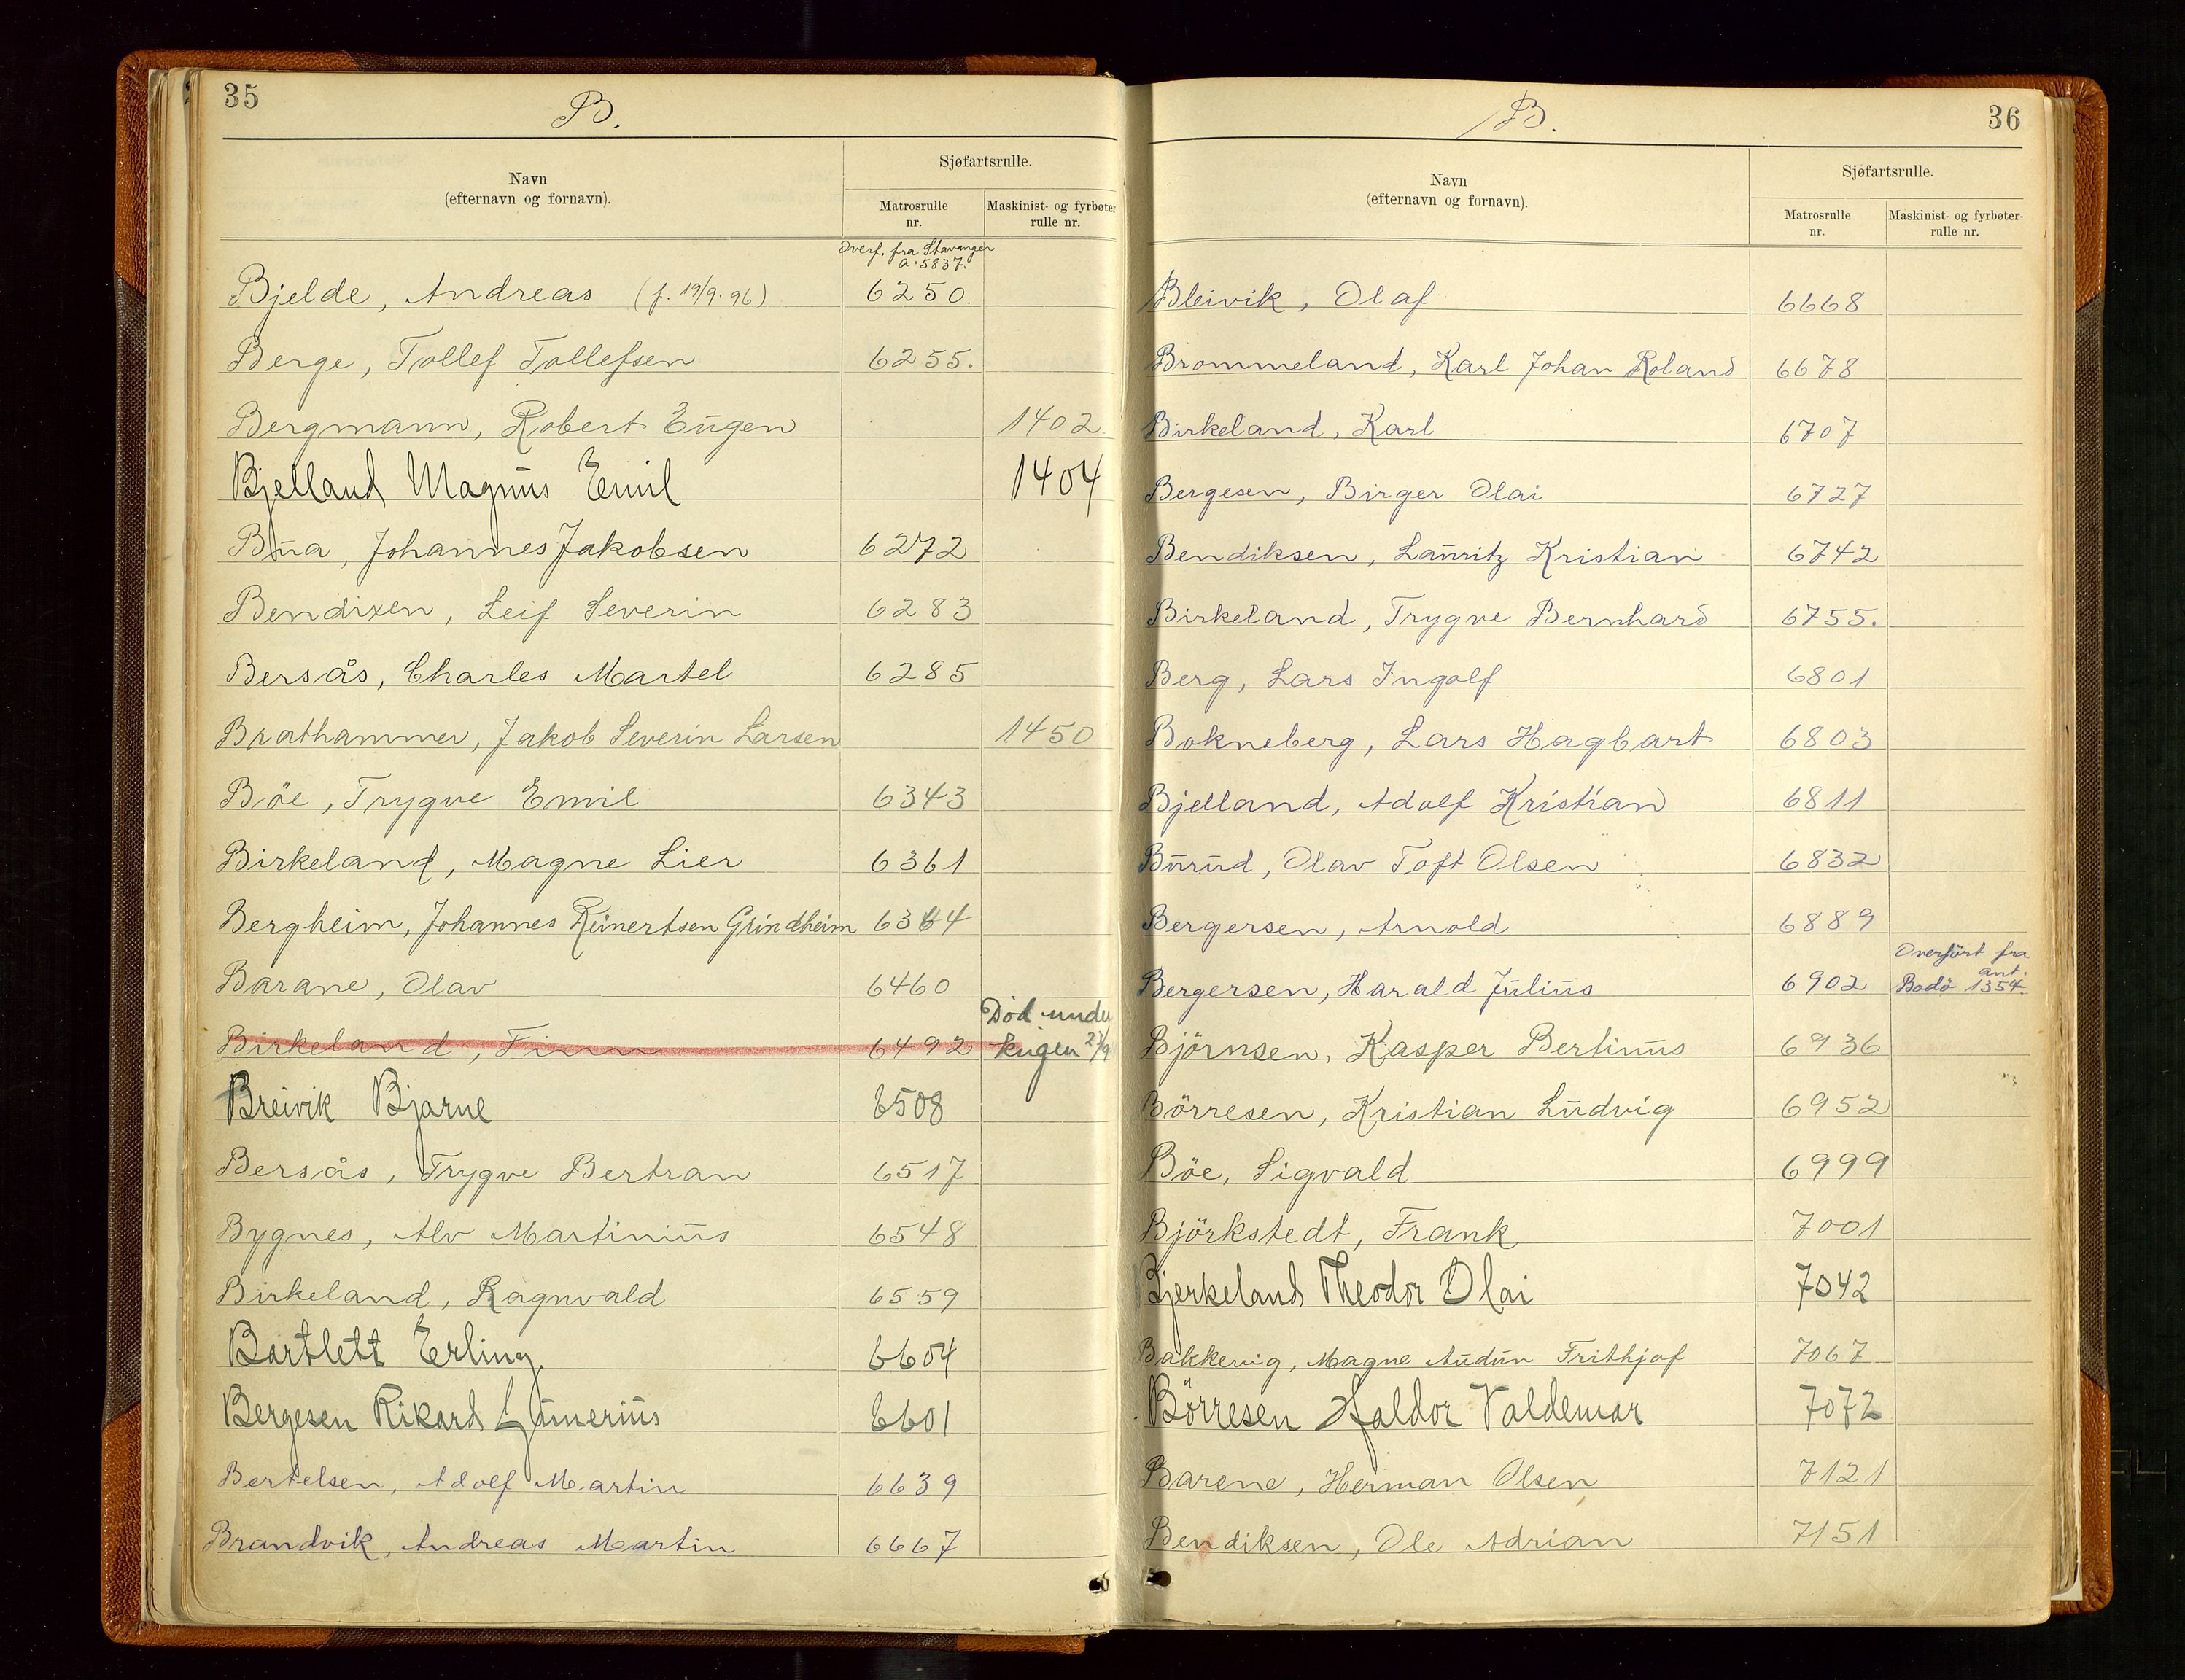 35
B.
Navn
(efternavn og fornavn).
Sjøfartsrulle.
Matrosrulle nr.
Maskinist- og fyrbøter rulle nr.
Overf. fra Stavanger a. 5837.
Bjelde, Andreas (f. 19/9.96) 6250.
Berge, Tollef Tollefsen 6255.
Bergmann, Robert Eugen 1402.
Bjelland Magnus Emil 1404
Bua, Johannes Jakobsen 6272
Bendixen, Leif Severin 6283
Bersås, Charles Martel 6285
Brathammer, Jakob Severin Larsen 1450
Böe, Trygve Emil 6343
Birkeland, Magne Lier 6361
Bergheim, Johannes Reinertsen Grindheim 6364
Barane, Olav 6460
Birkeland, Finn 6492 Död under krigen
Breivik Bjarne 6508
Bersås, Trygve Bertran 6517
Bygnes, Alv Martinius 6548
Birkeland, Ragnvald 6559
Bartlett Erling. 6604
Bergesen Rikard 6601
Bertelsen, Adolf Martin 6639
Brandvik, Andreas Martin 6667
B.
36
Navn
(efternavn og fornavn).
Sjøfartsrulle.
Matrosrulle nr.
Maskinist- og fyrbøter- rulle nr.
Bleivik, Olaf 6668
Brommeland, Karl Johan Roland 6678
Birkeland, Karl 6707
Bergesen, Birger Olai 6727
Bendiksen, Lauritz Kristian 6742
Birkeland, Trygve Bernhard 6755.
Berg, Lars Ingolf 6801
Bokneberg, Lars Hagbart 6803
Bjelland, Adolf Kristian 6811
Burud, Olav Toft Olsen 6832
Bergersen, Arnold 6889
Bergersen, Harald Julius 6902 Overfört fra Bodö ant. 1354.
Björnsen, Kasper Bertinus 6936
Börresen, Kristian Ludvig 6952
Böe, Sigvald 6999
Björkstedt, Frank 7001
Bjerkeland Theodor Olai 7042
Bakkevig, Magne Audun Frithjof 7067
Börresen Haldor Valdemar 7072
Barene, Herman Olsen 7121
Bendiksen, Ole Adrian 7151